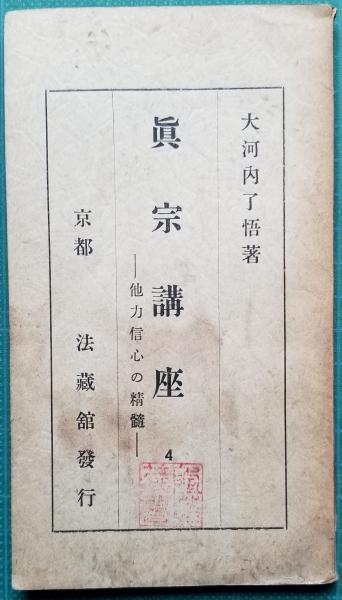 大河內了悟著
眞宗講座
―他力信心の精髓―
4
京都 法藏館發行